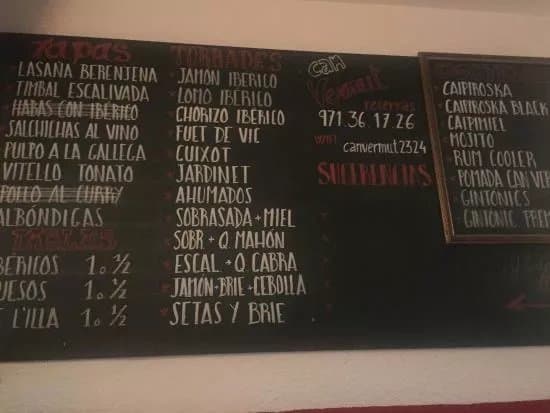 Tapas
LASAÑA BERENJENA
TIMBAL ESCALIVADA
HABAS CON IBÉRICO
SALCHICHAS AL VINO
PULPO A LA GALLEGA
VITELLO TONATO
POLLO AL CURRY
ALBÓNDIGAS
TABLES
BÉRICOS 1. ½
UESOS 1. ½
L'ILLA 1. ½
TORRADES
JAMÓN IBERICO
LOMO IBERICO
CHORIZO IBERICO
FUET DE VIC
CUIXOT
JARDINET
AHUMADOS
SOBRASADA + MIEL
SOBR + Q. MAHÓN
ESCAL. + Q CABRA
JAMÓN+BRIE+CEBOLLA
SETAS Y BRIE
CAN
Vermut
reservas
971.36.17.26
WIFI canvermut2324
SUGERENCIAS
CAIPIROSKA
CAIPIROSKA BLACK
CAIPIMIEL
MOJITO
RUM COOLER
POMADA CAN VER
GINTONICS
GINTONIC PREM